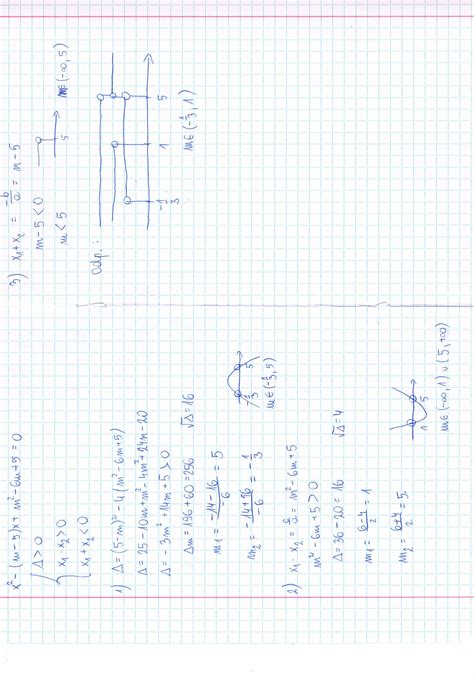 x² - (m-5)x + m² - 6m + 5 = 0
{ Δ > 0
x₁ · x₂ > 0
x₁ + x₂ < 0
1) Δ = (5-m)² - 4(m² - 6m + 5)
Δ = 25 - 10m + m² - 4m² + 24m - 20
Δ = -3m² + 14m + 5 > 0
Δm = 196 + 60 = 256 √Δ = 16
m₁ = -14-16/-6 = 5
m₂ = -14+16/-6 = -1/3
-1/3 5
m∈(-1/3, 5)
2) x₁ · x₂ = c/a = m² - 6m + 5
m² - 6m + 5 > 0
Δ = 36 - 20 = 16 √Δ = 4
m₁ = 6-4/2 = 1
m₂ = 6+4/2 = 5
1 5
m∈(-∞, 1) ∪ (5, +∞)
3) x₁ + x₂ = -b/a = m - 5
m - 5 < 0
m < 5
5
m∈(-∞, 5)
odp.:
-1/3 1 5
m∈(-1/3, 1)